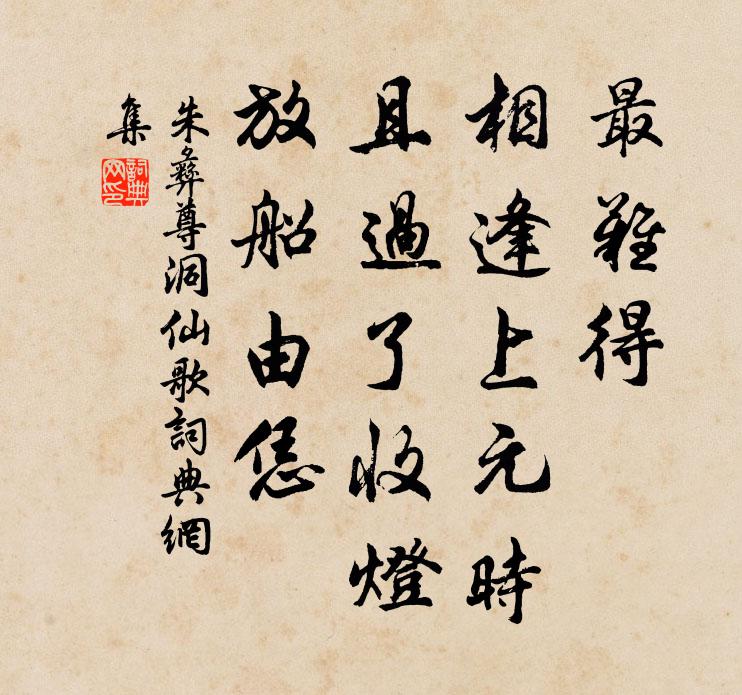 最難得
相逢上元時
且過了收燈
放船由恁
朱彝尊洞仙歌詞典網
集
詞典網印